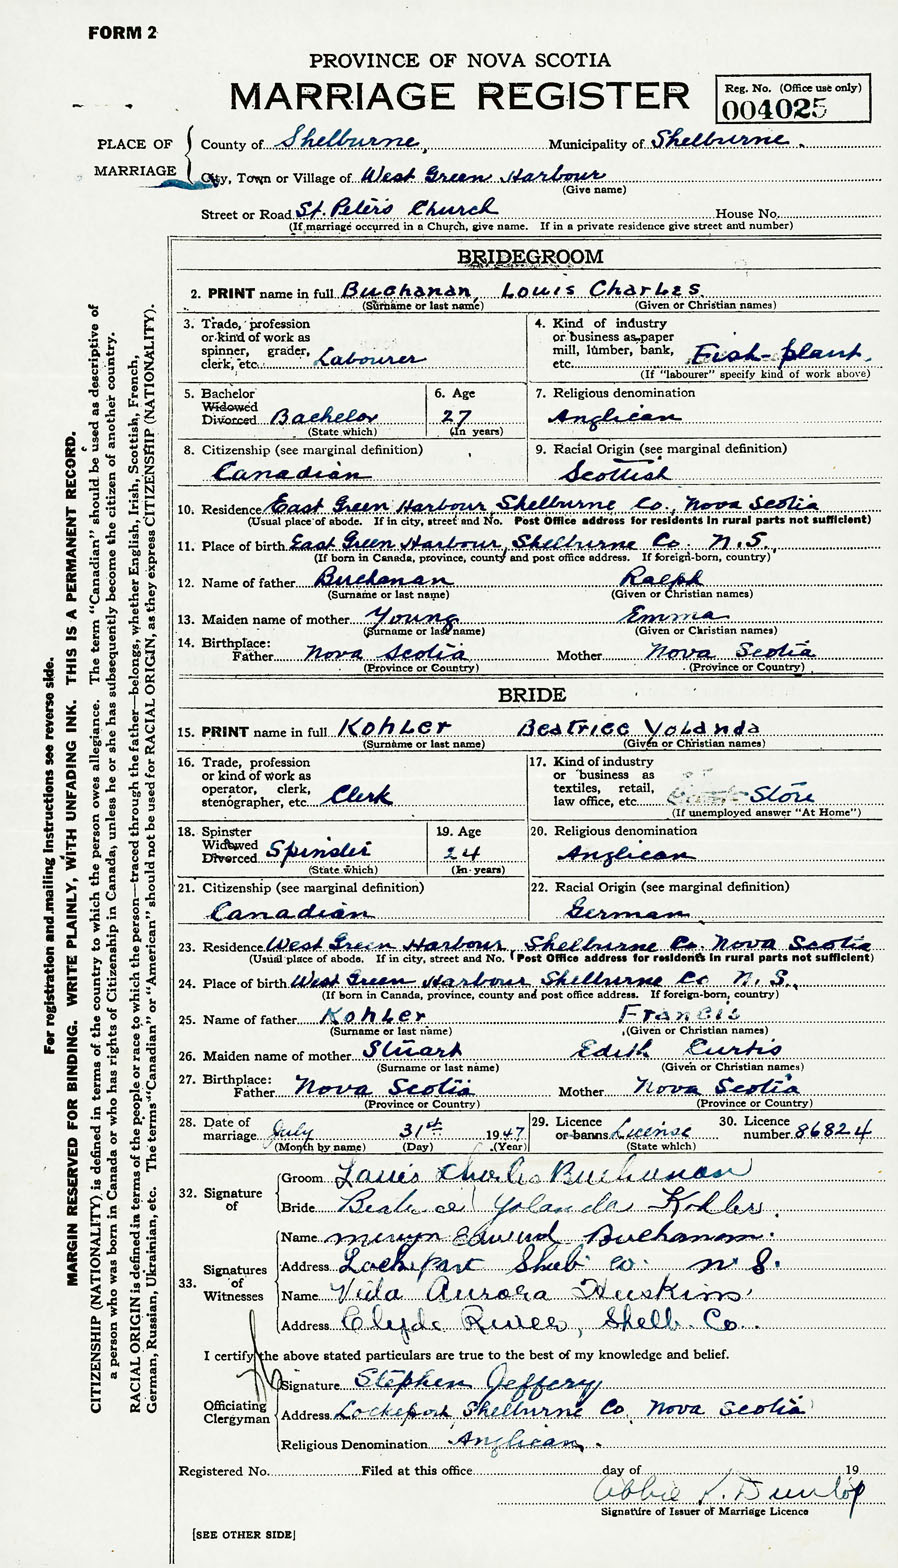 FORM 2
PROVINCE OF NOVA SCOTIA
MARRIAGE REGISTER
Reg. No. (Office use only)
004025
PLACE OF MARRIAGE
County of Shelburne, Municipality of Shelburne.
City, Town or Village of West Green Harbour
(Give name)
Street or Road St. Peter's Church House No.
(If marriage occurred in a Church, give name. If in a private residence give street and number)
BRIDEGROOM
2. PRINT name in full Buchanan, Louis Charles
(Surname or last name) (Given or Christian names)
3. Trade, profession or kind of work as spinner, grader, clerk, etc. Labourer
4. Kind of industry or business as paper mill, lumber, bank, etc. Fish-plant.
(If "labourer" specify kind of work above)
5. Bachelor Widowed Divorced Bachelor
(State which)
6. Age 27
(In years)
7. Religious denomination
Anglican
8. Citizenship (see marginal definition)
Canadian
9. Racial Origin (see marginal definition)
Scottish
10. Residence East Green Harbour, Shelburne Co., Nova Scotia
(Usual place of abode. If in city, street and No. Post Office address for residents in rural parts not sufficient)
11. Place of birth East Green Harbour, Shelburne Co. N.S.
(If born in Canada, province, county and post office address. If foreign-born, country)
12. Name of father Buchanan Ralph
(Surname or last name) (Given or Christian names)
13. Maiden name of mother Young Emma
(Surname or last name) (Given or Christian names)
14. Birthplace: Father Nova Scotia Mother Nova Scotia
(Province or Country) (Province or Country)
BRIDE
15. PRINT name in full Kohler Beatrice Yolanda
(Surname or last name) (Given or Christian names)
16. Trade, profession or kind of work as operator, clerk, stenographer, etc. Clerk
17. Kind of industry or business as textiles, retail, law office, etc. Store
(If unemployed answer "At Home")
18. Spinster Widowed Divorced Spinster
(State which)
19. Age 24
(In years)
20. Religious denomination
Anglican
21. Citizenship (see marginal definition)
Canadian
22. Racial Origin (see marginal definition)
German
23. Residence West Green Harbour, Shelburne Co. Nova Scotia
(Usual place of abode. If in city, street and No. Post Office address for residents in rural parts not sufficient)
24. Place of birth West Green Harbour Shelburne Co N.S.
(If born in Canada, province, county and post office address. If foreign-born, country)
25. Name of father Kohler Francis
(Surname or last name) (Given or Christian names)
26. Maiden name of mother Stuart Edith Curtis
(Surname or last name) (Given or Christian names)
27. Birthplace: Father Nova Scotia Mother Nova Scotia
(Province or Country) (Province or Country)
28. Date of marriage July 31st 1947
(Month by name) (Day) (Year)
29. Licence or banns License
(State which)
30. Licence number 86824
32. Signature of
Groom Louis Charles Buchanan
Bride Beatrice Yolanda Kohler.
33. Signatures of Witnesses
Name Edward Buchanan.
Address Lockeport Shelb Co. N S.
Name Vida Aurora Huskins
Address Clyde River, Shelb. Co.
I certify the above stated particulars are true to the best of my knowledge and belief.
Officiating Clergyman
Signature Stephen Jeffery
Address Lockeport Shelburne Co, Nova Scotia
Religious Denomination Anglican.
Registered No. Filed at this office day of 19
Abbie K. Dunlop
Signature of Issuer of Marriage Licence
[SEE OTHER SIDE]
For registration and mailing instructions see reverse side.
MARGIN RESERVED FOR BINDING. WRITE PLAINLY, WITH UNFADING INK. THIS IS A PERMANENT RECORD.
CITIZENSHIP (NATIONALITY) is defined in terms of the country to which the person owes allegiance. The term "Canadian" should be used as descriptive of
a person who was born in Canada or who has rights of Citizenship in Canada, unless he or she has subsequently become the citizen of another country.
RACIAL ORIGIN is defined in terms of the people or race to which the person—traced through the father—belongs, whether English, Irish, Scottish, French,
German, Russian, Ukrainian, etc. The terms "Canadian" or "American" should not be used for RACIAL ORIGIN, as they express CITIZENSHIP (NATIONALITY).